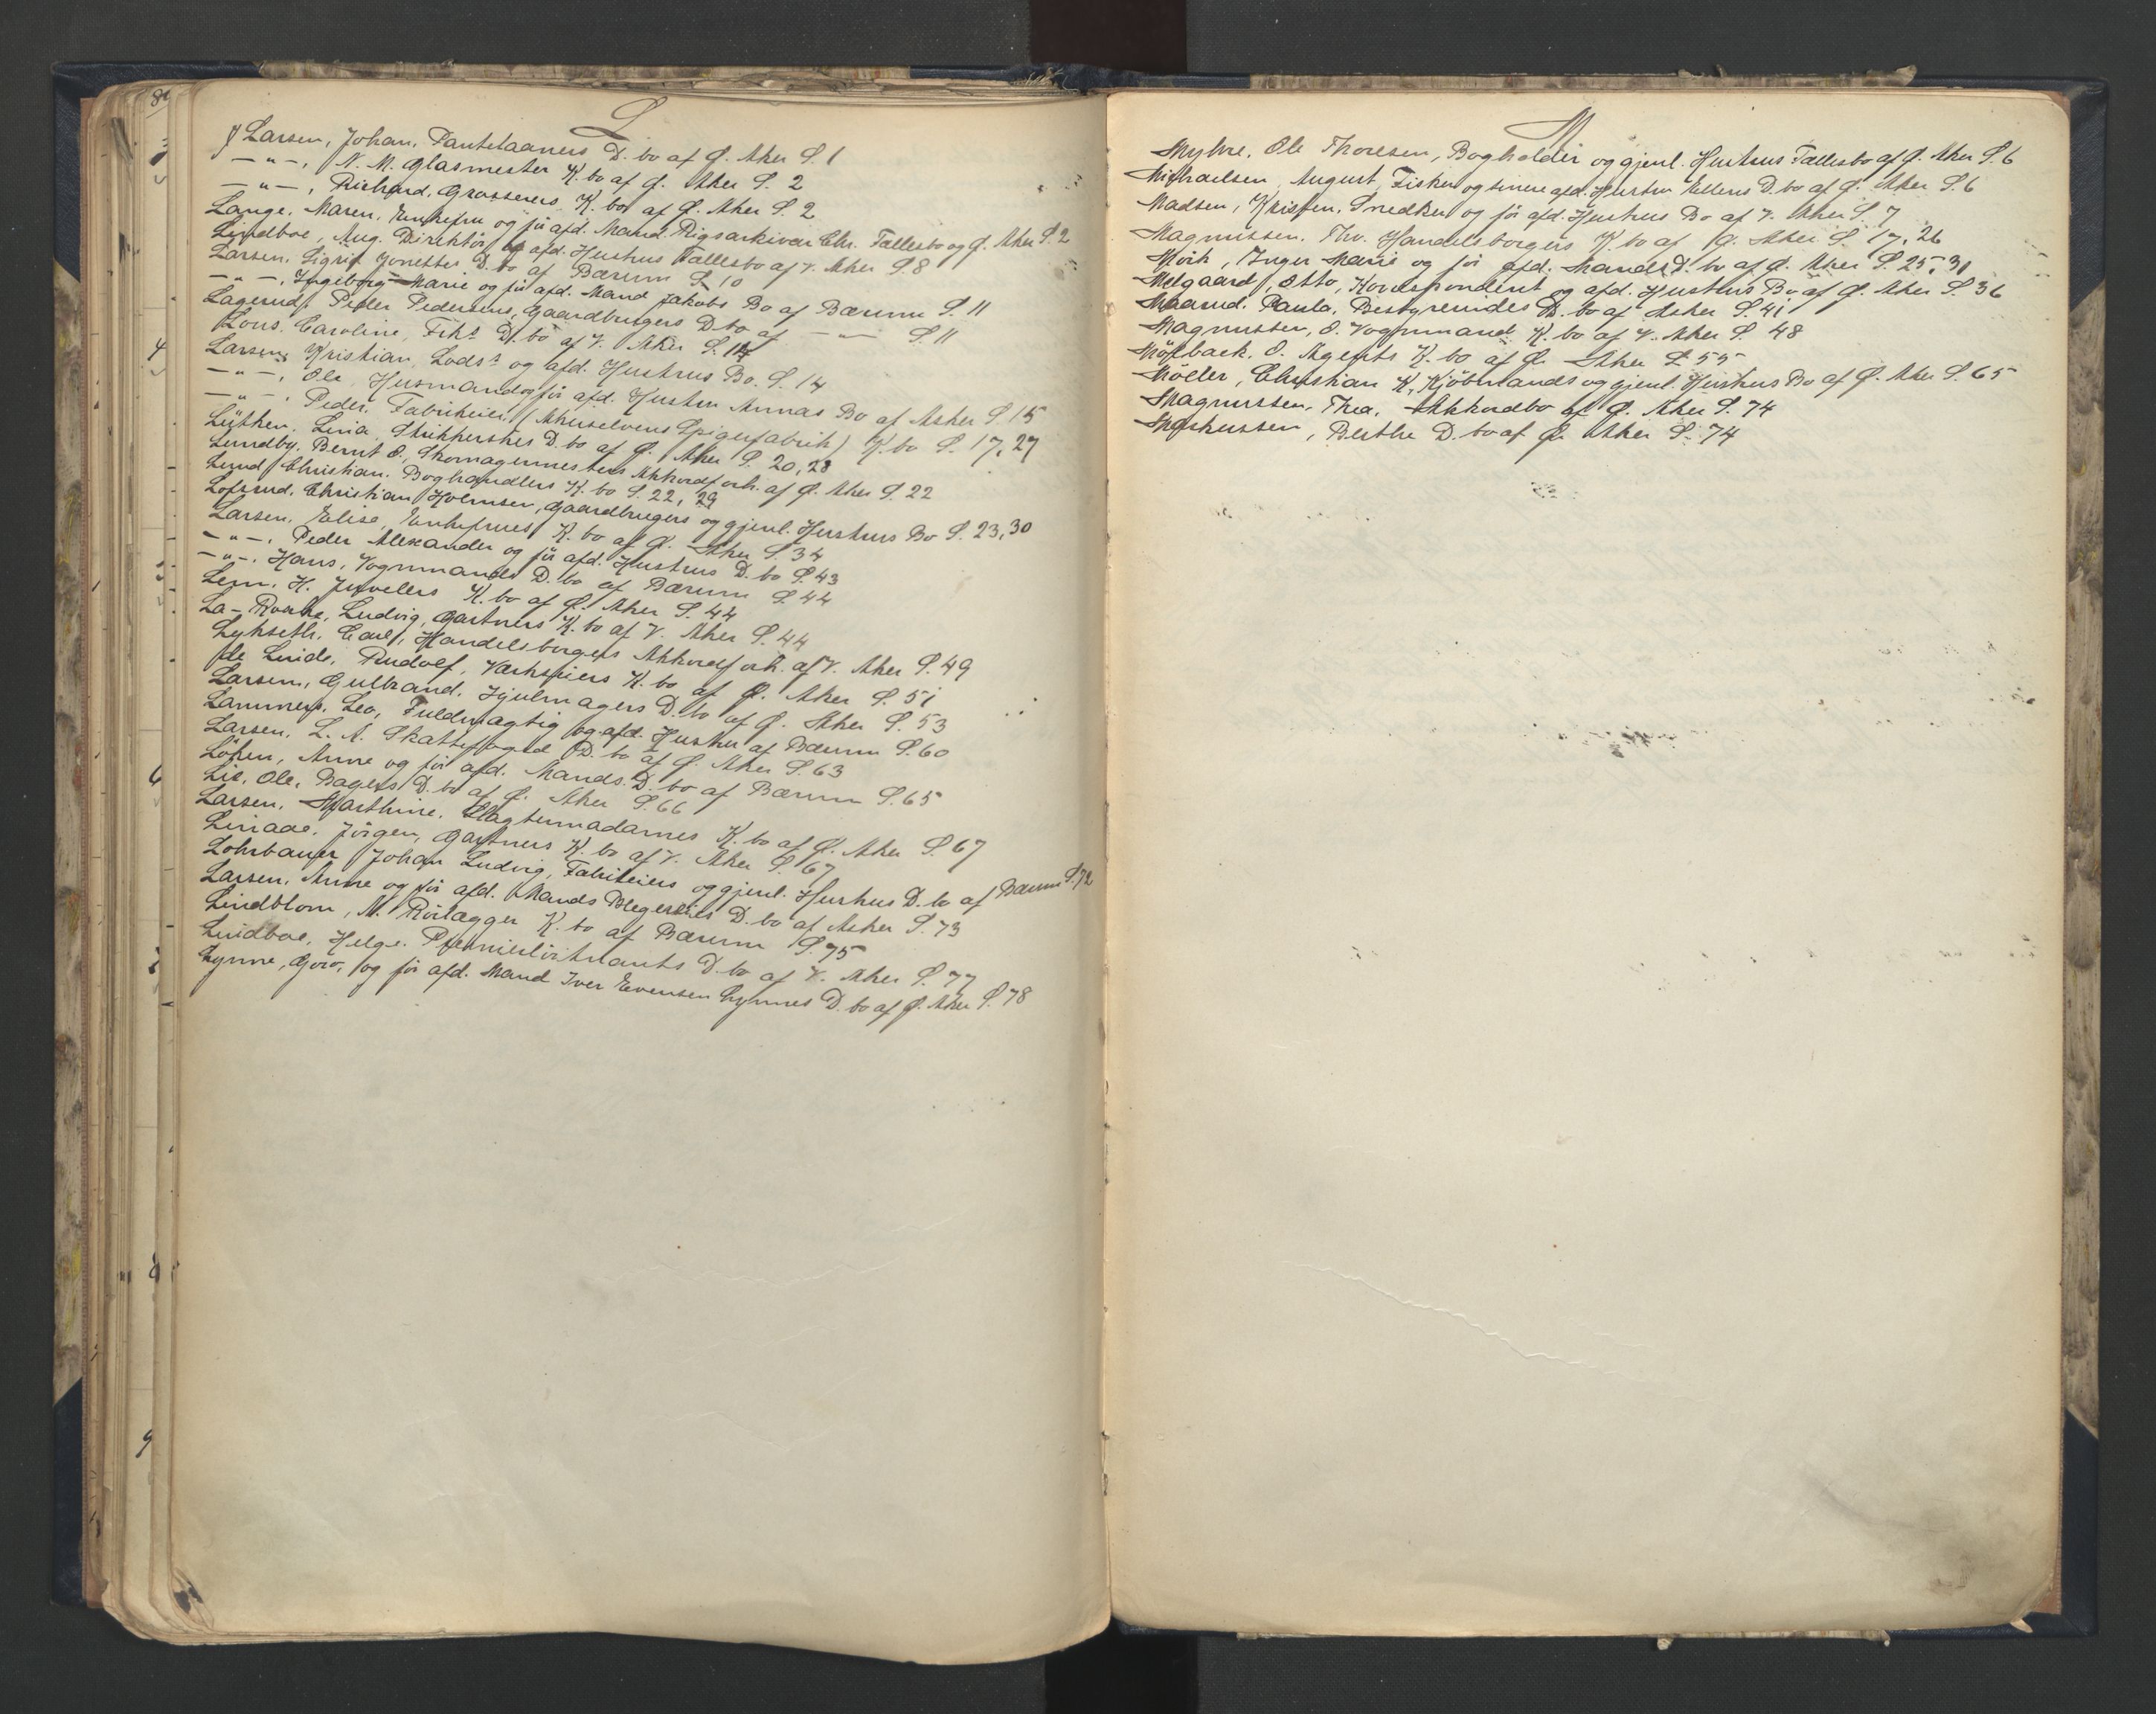 L
Larsen, Johan, Pantelaaners D. bo af Ø. Aker S. 1
— " —, N. M. Glasmester K. bo af Ø. Aker S. 2
— " —, Richard, Grosserers K. bo af Ø. Aker S. 2
Lange, Maren, Enkefru og før afd. Mand Rigsarkivar Chr. Fællesbo og Ø. Aker S. 2
Lindboe, Aug. Direktør og afd. Hustrus Fællesbo af V. Aker S. 8
Larsen, Sigrid Jonettes D. bo af Bærum S. 10
— " —, Ingeborg Marie og før afd. Mand Jakobs Bo af Bærum S. 11
Lagerud, Peder Pedersens, Gaardbrugers D. bo af — " — S. 11
Lous, Caroline, Frks D. bo af V. Aker S. 14
Larsen, Kristian, Lods og afd. Hustrus Bo. S. 14
— " —, Ole, Husmand og før afd. Hustru Annas Bo af Asker S. 15
— " —, Peder, Fabrikeier (Akerselvens Spigerfabrik) K. bo S. 17, 27
Lüthen, Lina, Strikkerskes D. bo af Ø. Aker S. 20, 28
Lundby, Bernt O., Skomagermesters Akkordforh. af Ø. Aker S. 22
Lund, Christian, Boghandlers K. bo S. 22, 29
Lofsrud, Christian Holmsen, Gaardbrugers og gjenl. Hustrus Bo S. 23, 30
Larsen, Elise, Enkefrues K. bo af Ø. Aker S. 34
— " —, Peder Alexander og før afd. Hustrus D. bo S. 43
— " —, Hans, Vognmands D. bo af Bærum S. 44
Lem, H. Juvelers K. bo af Ø. Aker S. 44
La-Roche, Ludvig, Gartners K. bo af V. Aker S. 44
Lykseth, Carl, Handelsborgers Akkordforh. af V. Aker S. 49
de Linde, Rudolf, Værkseiers K. bo af Ø. Aker S. 51
Larsen, Gulbrand, Hjulmagers D. bo af Ø. Aker S. 53
Lammers, Leo, Fuldmægtig og afd. Hustru af Bærum S. 60
Larsen, L. A. Skattefoged D. bo af Ø. Aker S. 63
Löken, Anne og før afd. Mands D. bo af Bærum S. 65
Lie, Ole, Bagers D. bo af Ø. Aker S. 66
Larsen, Marthine, Slagtermadames K. bo af Ø. Aker S. 67
Linaae, Jörgen, Gartners K. bo af V. Aker S. 67
Lohrbauer, Johan Ludvig, Fabrikeiers og gjenl. Hustrus D. bo af Bærum S. 72
Larsen, Anne og før afd. Mands D. bo af Asker S. 73
Lindblom, A. Rörlægger K. bo af Bærum S. 75
Lindboe, Helge, Premierlöitnants D. bo af V. Aker S. 77
Lynne, Goro, og før afd. Mand Iver Evensen Lynnes D. bo af Ø. Aker S. 78
M
Myhre, Ole Thoresen, Bogholder og gjenl. Hustrus Fællesbo af Ø. Aker S. 6
Michaelsen, August, Fisker og tinere afd. Hustru Ellens D. bo af Ø. Aker S. 6
Madsen, Kristen, Snedker og før afd. Hustrus Bo af V. Aker S. 7
Magnussen, Thv. Handelsborgers K. bo af Ø. Aker S. 17, 26
Mörk, Inger Marie og før afd. Mands D. bo af Ø. Aker S. 25, 31
Melgaard, Otto, Korrespondent og afd. Hustrus Bo af Ø. Aker S. 36
Maarud, Paula, Bestyrerindes D. bo af Asker S. 41
Magnussen, O. Vognmands K. bo af V. Aker S. 48
Mörbæck, O. Agents K. bo af Ø. Aker S. 55
Möller, Christian K., Kjöbmands og gjenl. Hustrus Bo af Ø. Aker S. 65
Magnussen, Thea, Akkordbo af Ø. Aker S. 74
Markussen, Berthe D. bo af Ø. Aker S. 74
8
4
6
8
9